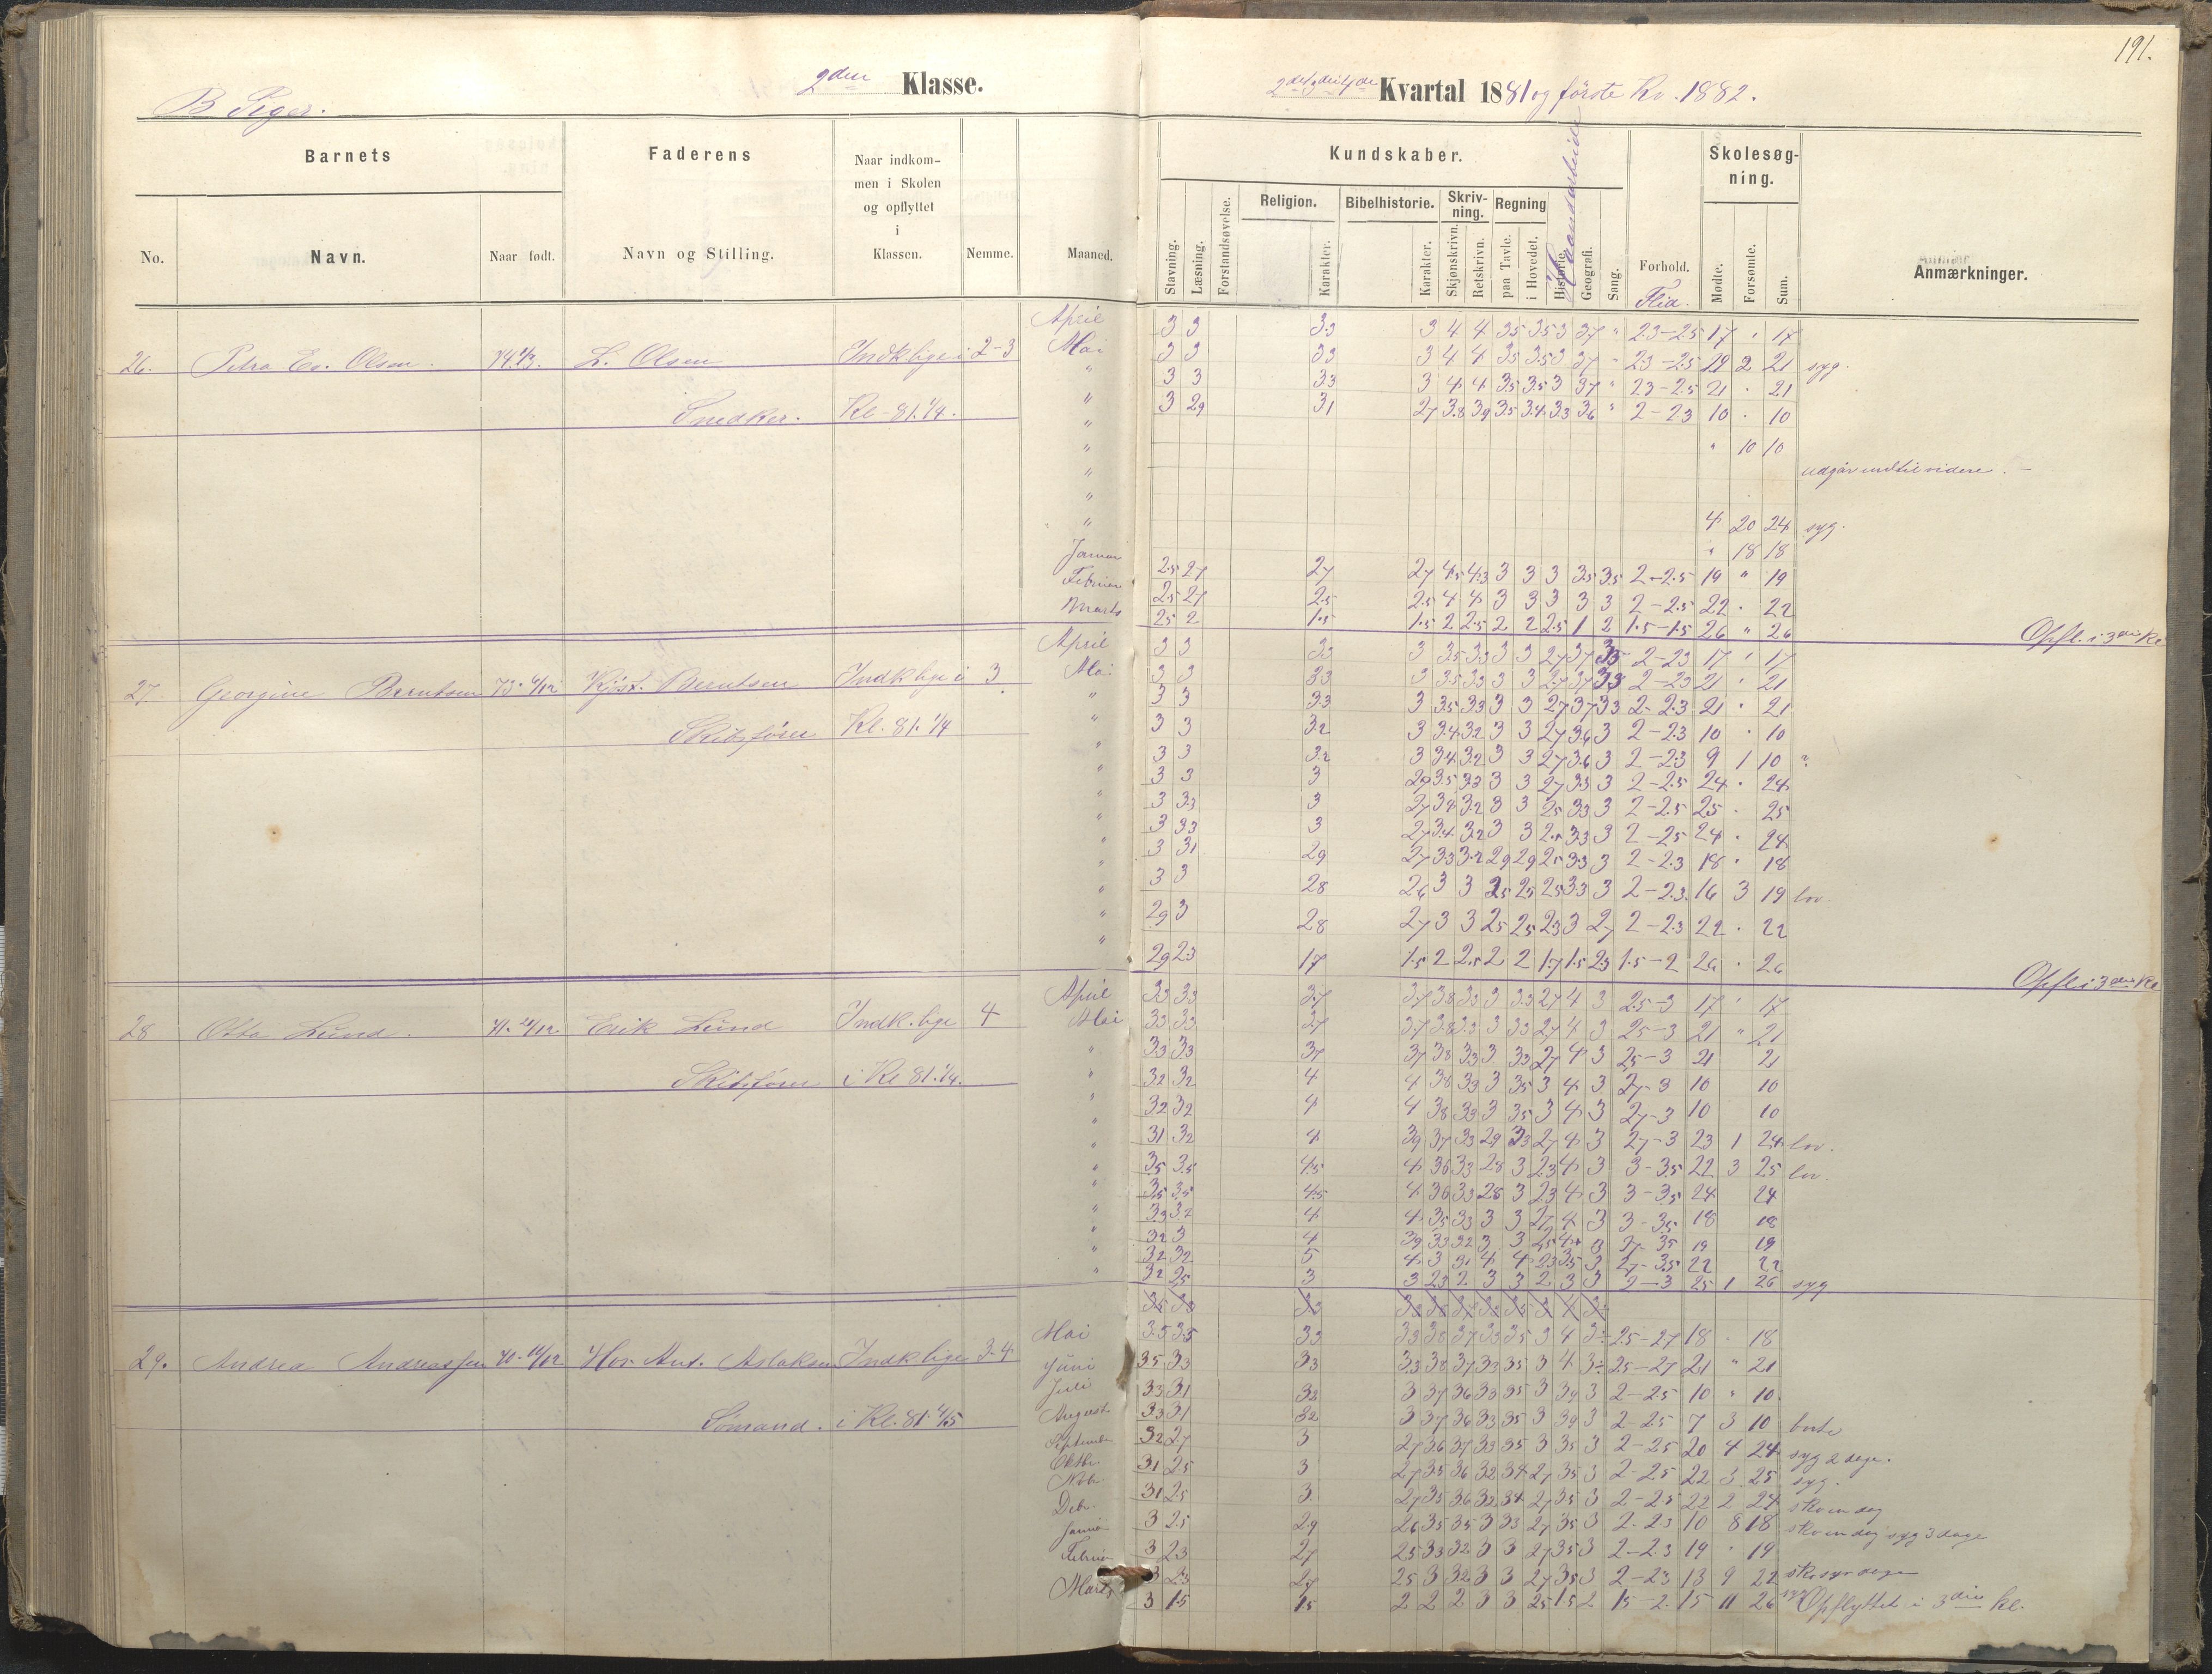 191.
B Piger.
2den Klasse.
Kvartal 1881 og förste Kv. 1882.
Barnets
Faderens
Naar indkommen i Skolen og opflyttet i Klassen.
Nemme.
Maaned.
No.
Navn.
Naar født.
Navn og Stilling.
Kundskaber.
Haandarbeide
Stavning.
Læsning.
Forstandsøvelse.
Religion.
Karakter.
Bibelhistorie.
Karakter.
Skrivning.
Skjønskrivn.
Retskrivn.
Regning
paa Tavle.
i Hovedet.
Historie.
Geografi.
Sang.
Forhold.
Flid.
Skolesøgning.
Mødte.
Forsømte.
Sum.
Anmærkninger.
April 3 3 33 3 4 4 35 35 3 37 " 23-25 17 " 17
26. Petra Ev. Olsen. L. Olsen Indk lige i 2-3 Mai 3 3 33 3 4 4 35 35 3 37 " 23-25 19 2 21 syg.
" 3 3 33 3 4 4 35 35 3 37 " 23-25 21 . 21
Snedker. Kl-81.1/4. " 3 29 31 27 38 39 35 34 33 36 " 2-23 10 . 10
" " 10 10
" udgår indtil videre.
"
" 4 20 24 syg.
Januar " 18 18
Februar 25 27 27 27 45 43 3 3 3 35 35 2-25 19 " 19
Marts 25 27 25 25 4 4 3 3 3 3 3 2-25 22 . 22
25 2 15 15 2 25 2 2 25 1 2 15-15 26 " 26
Opfl. i 3die Kl
April 3 3 33 3 35 33 3 3 27 37 35 2-23 17 " 17
27 Georgine Berntsen Kjöst. Berntsen Indk lige i 3 Mai 3 3 33 3 35 33 3 3 27 37 33 2-23 21 " 21
" 3 3 33 3 35 33 3 3 27 37 33 2-23 21 " 21
Skibsförer Kl. 81.1/4 " 3 3 32 3 34 32 3 3 27 36 3 2-23 10 . 10
" 3 3 32 3 34 32 3 3 27 36 3 2-23 9 1 10 ?
" 3 3 3 29 35 32 3 3 27 33 3 2-25 24 . 24
" 3 33 3 27 34 32 3 3 25 33 3 2-25 25 . 25
" 3 33 3 27 34 32 3 3 25 33 3 2-25 24 . 24
" 3 31 29 27 33 32 29 29 25 33 3 2-23 18 " 18
" 3 3 28 26 3 3 25 25 25 33 3 2-23. 16 3 19 lov
" 29 3 28 27 3 3 25 25 23 3 27 2-23 22 . 22
" 29 23 17 15 2 25 2 2 17 15 23 15-2 26 . 26
Opfl. i 3die Kl
April 33 33 37 37 38 33 3 33 27 4 3 25-3 17 " 17
28 Otto Lund. Erik Lund Indk. lige 4 Mai 33 33 37 37 38 33 3 33 27 4 3 25-3 21 " 21
" 33 33 37 37 38 33 3 33 27 4 3 25-3 21 21
Skibsförer i Kl 81.1/4. " 32 32 4 4 38 33 3 35 3 4 3 27-3 10 10
" 32 32 4 4 38 33 3 35 3 4 3 27-3 10 10
" 31 32 4 39 37 33 29 33 27 4 3 27-3 23 1 24 lov.
" 35 35 45 4 36 33 28 3 23 4 3 3-35 22 3 25 lov
" 35 35 45 4 36 33 28 3 23 4 3 3-35 24 24
" 33 32 4 4 35 33 3 3 27 4 3 3-35 18 18
" 32 3 4 39 33 32 3 3 25 4 3 37-35 19 19
" 32 32 5 4 3 31 4 4 23 35 3 27-35 22 22
" 32 25 3 3 23 2 3 3 2 3 3 2-3 25 1 26 syg
Mai 35 35 33 33 38 37 33 35 3 4 3 25-27 18 . 18
29. Andrea Andreassen 70. 10/12 Hov. Ant. Aslaksen Indk lige 3-4 Juni 35 33 33 33 38 37 33 35 3 4 3 25-27 21 " 21
Juli 33 31 32 3 37 36 33 35 3 39 3 2-25 10 " 10.
Sömand. i Kl. 81.4/5 August 33 31 32 3 37 36 33 35 3 39 3 2-25 7 3 10 borte
September 32 27 3 27 36 37 33 35 3 35 3 2-25 20 4 24 syg 2 dage.
Oktbr. 31 25 3 27 35 36 32 34 27 35 3 2-25 22 3 25 syg.
Nvbr. 31 25 3 27 35 36 32 34 27 35 3 2-25 22 2 24
Debr. 3 25 29 26 35 35 3 33 27 35 3 2-23 10 8 18 syg 3 dage
Januar 3 23 27 25 33 32 3 3 27 35 3 2-23 19 " 19
Februar 3 23 27 25 3 32 3 3 27 35 3 2-23 13 9 22
Marts 3 15 15 2 2 2 3 3 25 15 2 15-2. 15 11 26 syg Opflyttet i 3die kl.